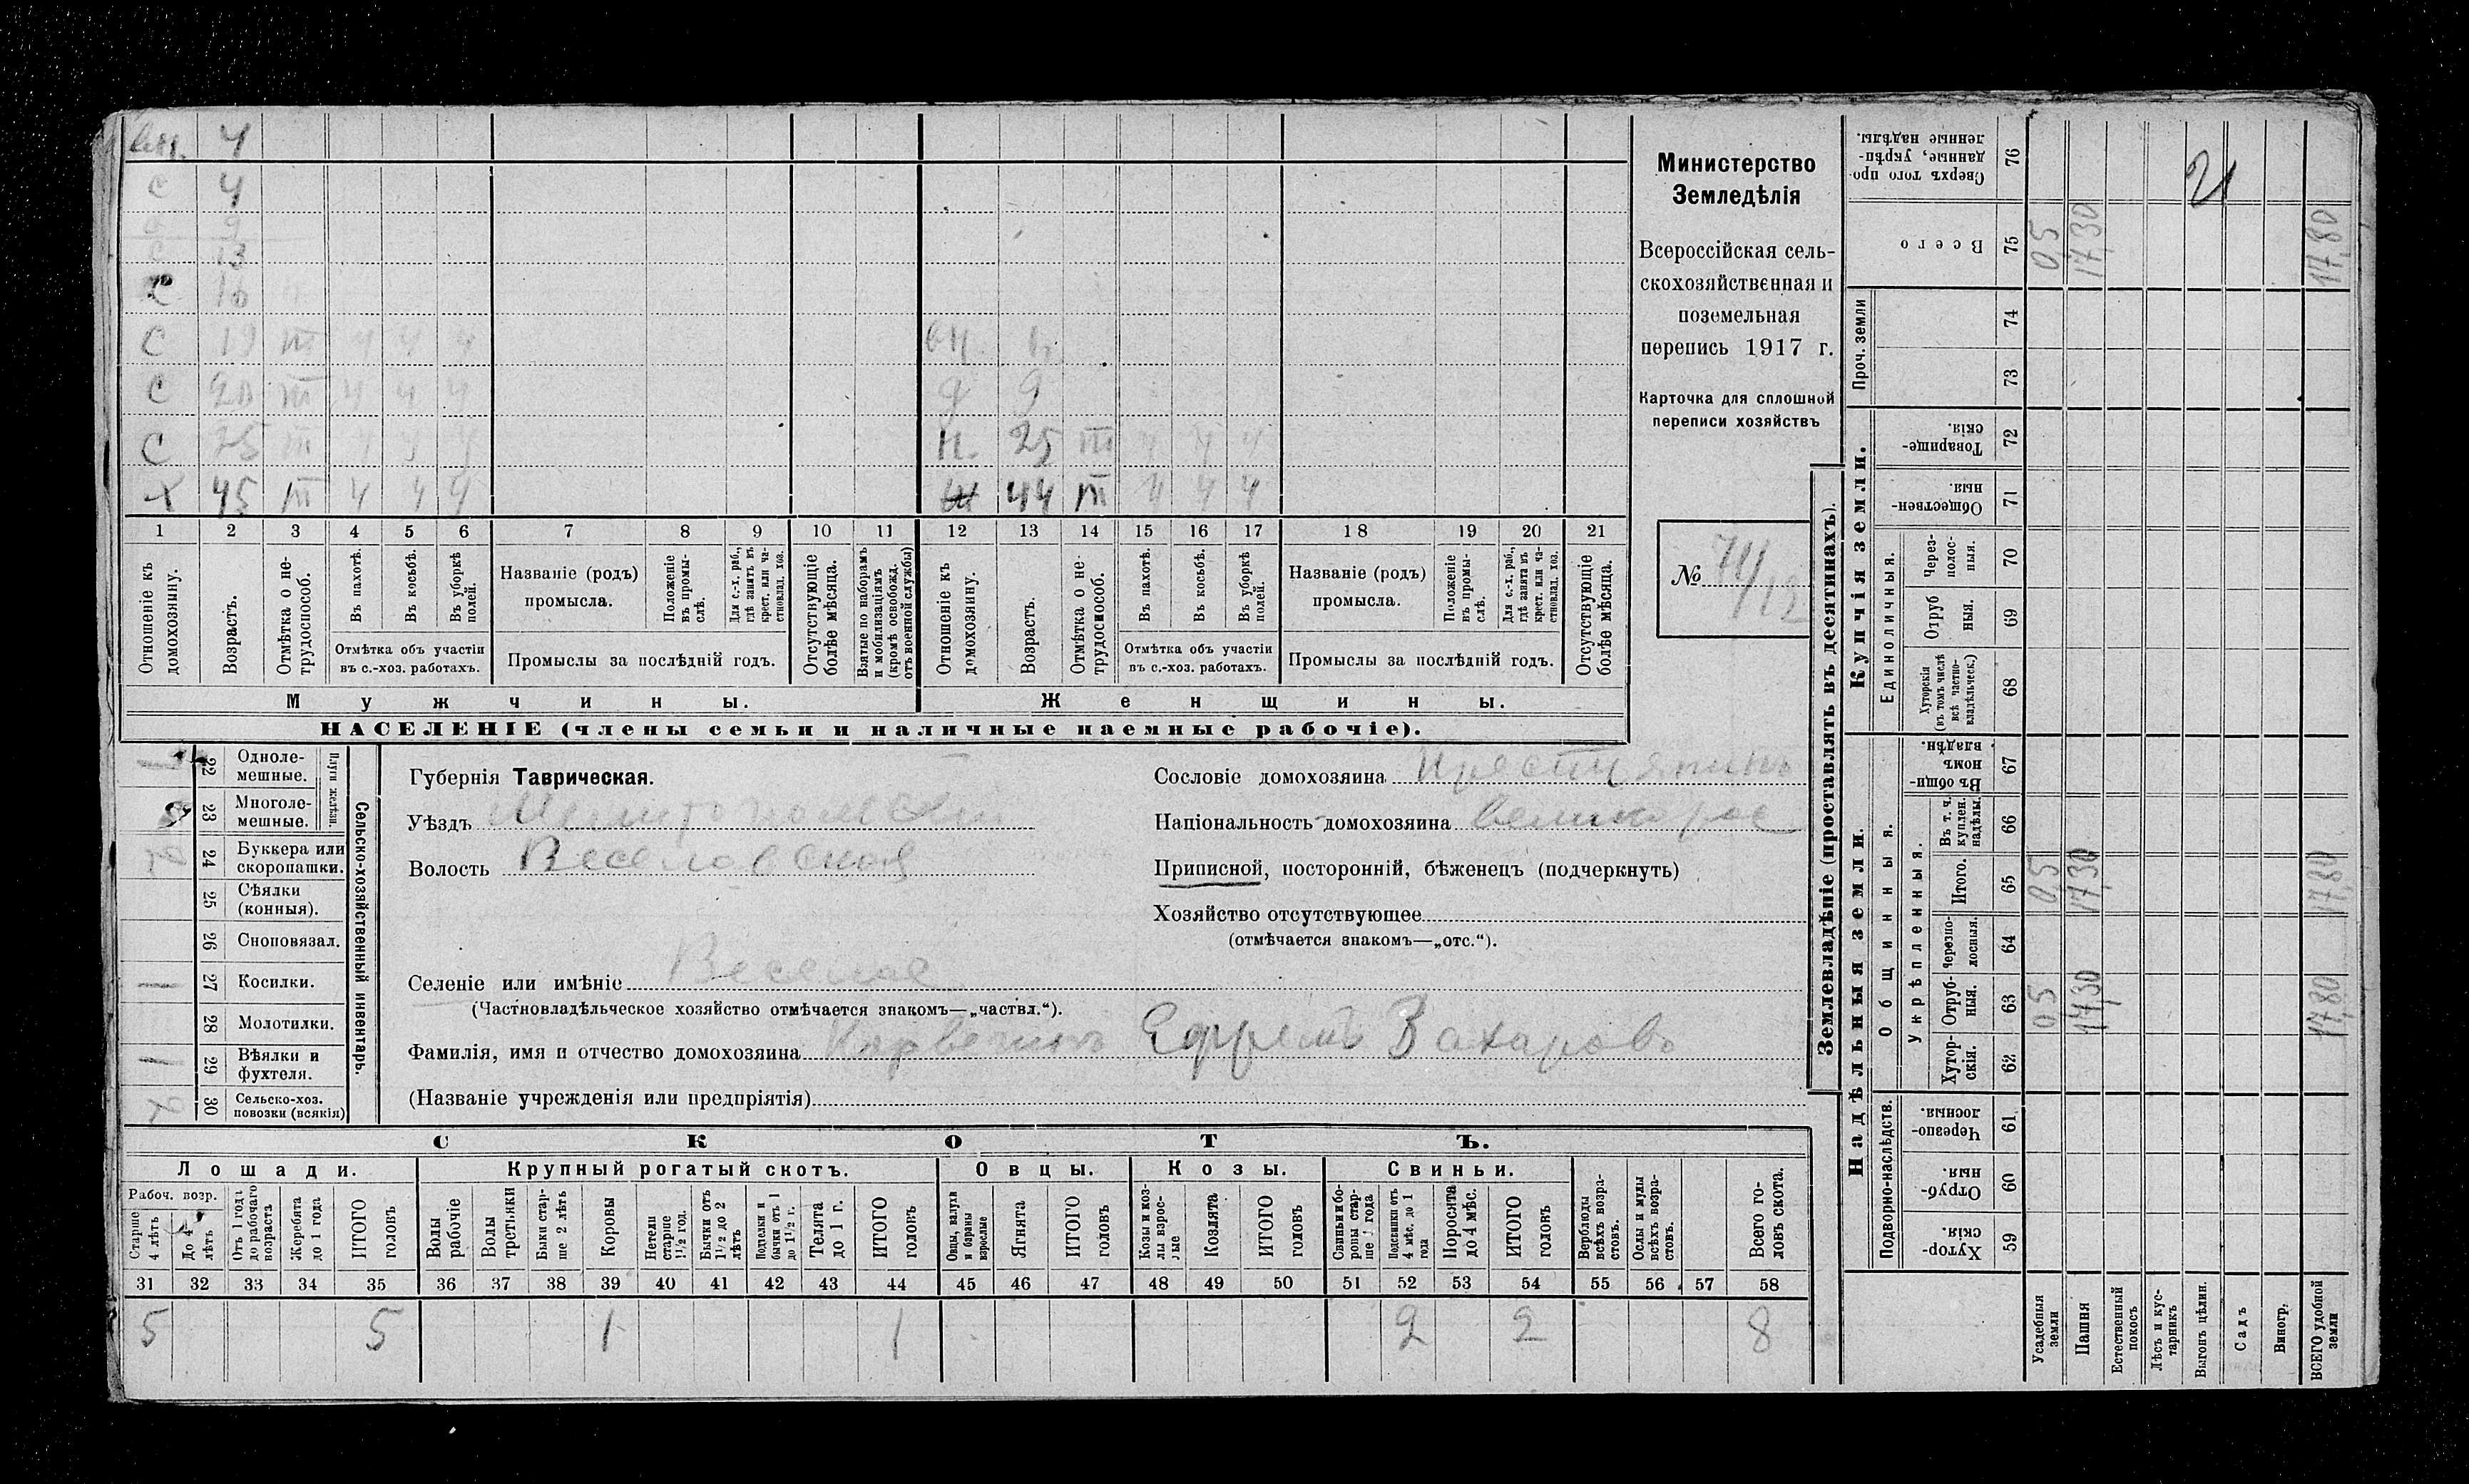 внн. 4
С 4
С 13
С 16
С 19 III 4 4 4 вн.
С 20 III 4 4 4 д 9
С 25 III 4 4 н. 25 III 4 4 4
Х 45 III 4 4 4 44 III 4 4 4
1 2 3 4 5 6 7 8 9 10 11 12 13 14 15 16 17 18 19 20 21
Отношеніе къ домохозяину.
Возрастъ.
Отмѣтка о нетрудоспособ.
Въ пахотѣ.
Въ косьбѣ.
Въ уборкѣ полей.
Отмѣтка объ участіи въ с.-хоз. работахъ.
Названіе (родъ) промысла.
Положеніе въ промыслѣ.
Для с.-х. раб., гдѣ занятъ въ крест. или частновлад. хоз.
Промыслы за послѣдній годъ.
Отсутствующіе болѣе мѣсяца.
Взятые по наборамъ и мобилизаціямъ (кромѣ освобожд. отъ военной службы)
Отношеніе къ домохозяину.
Возрастъ.
Отмѣтка о нетрудоспособ.
Въ пахотѣ.
Въ косьбѣ.
Въ уборкѣ полей.
Отмѣтка объ участіи въ с.-хоз. работахъ.
Названіе (родъ) промысла.
Положеніе въ промыслѣ.
Для с.-х. раб., гдѣ занята въ крест. или частновлад. хоз.
Промыслы за послѣдній годъ.
Отсутствующіе болѣе мѣсяца.
Мужчины. Женщины.
НАСЕЛЕНІЕ (члены семьи и наличные наемные рабочіе).
Министерство
Земледѣлія
Всероссійская сель-
скохозяйственная и
поземельная
перепись 1917 г.
Карточка для сплошной
переписи хозяйствъ
№
Сельско-хозяйственный инвентарь.
Плуги желѣзн.
1 22 Одноле-мешные.
23 Многоле-мешные.
24 Буккера или скоропашки.
25 Сѣялки (конныя).
26 Сноповязал.
1 27 Косилки.
28 Молотилки.
1 29 Вѣялки и фухтеля.
2 30 Сельско-хоз. повозки (всякія)
Губернія Таврическая.
Уѣздъ Мелитопольскій
Волость Веселовская
Селеніе или имѣніе Веселое
(Частновладѣльческое хозяйство отмѣчается знакомъ—„частвл.“).
Фамилія, имя и отчество домохозяина Ефремъ Захаровъ
(Названіе учрежденія или предпріятія)
Сословіе домохозяина Крестьянинъ
Національность домохозяина Великорос
Приписной, посторонній, бѣженецъ (подчеркнуть)
Хозяйство отсутствующее
(отмѣчается знакомъ—„отс.“).
СКОТЪ.
Лошади. Крупный рогатый скотъ. Овцы. Козы. Свиньи.
Рабоч. возр.
Старше 4 лѣтъ
До 4 лѣтъ
Отъ 1 года до рабочаго возраста
Жеребята до 1 года
ИТОГО головъ
Волы рабочіе
Волы третьяки
Быки старше 2 лѣтъ
Коровы
Нетели старше 1½ год.
Бычки отъ 1½ до 2 лѣтъ
Подтелки и бычки отъ 1 до 1½ г.
Телята до 1 г.
ИТОГО головъ
Овцы, валухи и бараны взрослые
Ягнята
ИТОГО головъ
Козы и козлы взрослые
Козлята
ИТОГО головъ
Свиньи и боровы старше 1 года
Подсвинки отъ 4 мѣс. до 1 года
Поросята до 4 мѣс.
ИТОГО головъ
Верблюды всѣхъ возрастовъ.
Ослы и мулы всѣхъ возрастовъ.
Всего головъ скота.
31 32 33 34 35 36 37 38 39 40 41 42 43 44 45 46 47 48 49 50 51 52 53 54 55 56 57 58
5 5 1 1 2 2 8
Землевладѣніе (проставлять въ десятинахъ).
Надѣльныя земли. Купчія земли. Проч. земли
Подворно-наслѣдств. Общинныя. Укрѣпленныя. Единоличныя.
59 Хуторскія.
60 Отрубныя.
61 Черезполосныя.
62 Хуторскія.
63 Отрубныя. 05 17,30 17,80
64 Черезполосныя.
65 Итого. 05 17,30 17,80
66 Въ т. ч. куплен. надѣлы.
67 Въ общинномъ владѣн.
68 Хуторскія (въ томъ числѣ всѣ частновладѣльческ.)
69 Отрубныя.
70 Черезполосныя.
71 Общественныя.
72 Товарищескія.
73
74
75 Всего 05 17,30 17,80
76 Сверхъ того проданные, укрѣпленные надѣлы.
21
Усадебныя земли
Пашня
Естественный покосъ
Лѣсъ и кустарникъ
Выгонъ цѣлин.
Садъ
Виногр.
ВСЕГО удобной земли